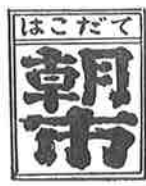 はこだて
朝市